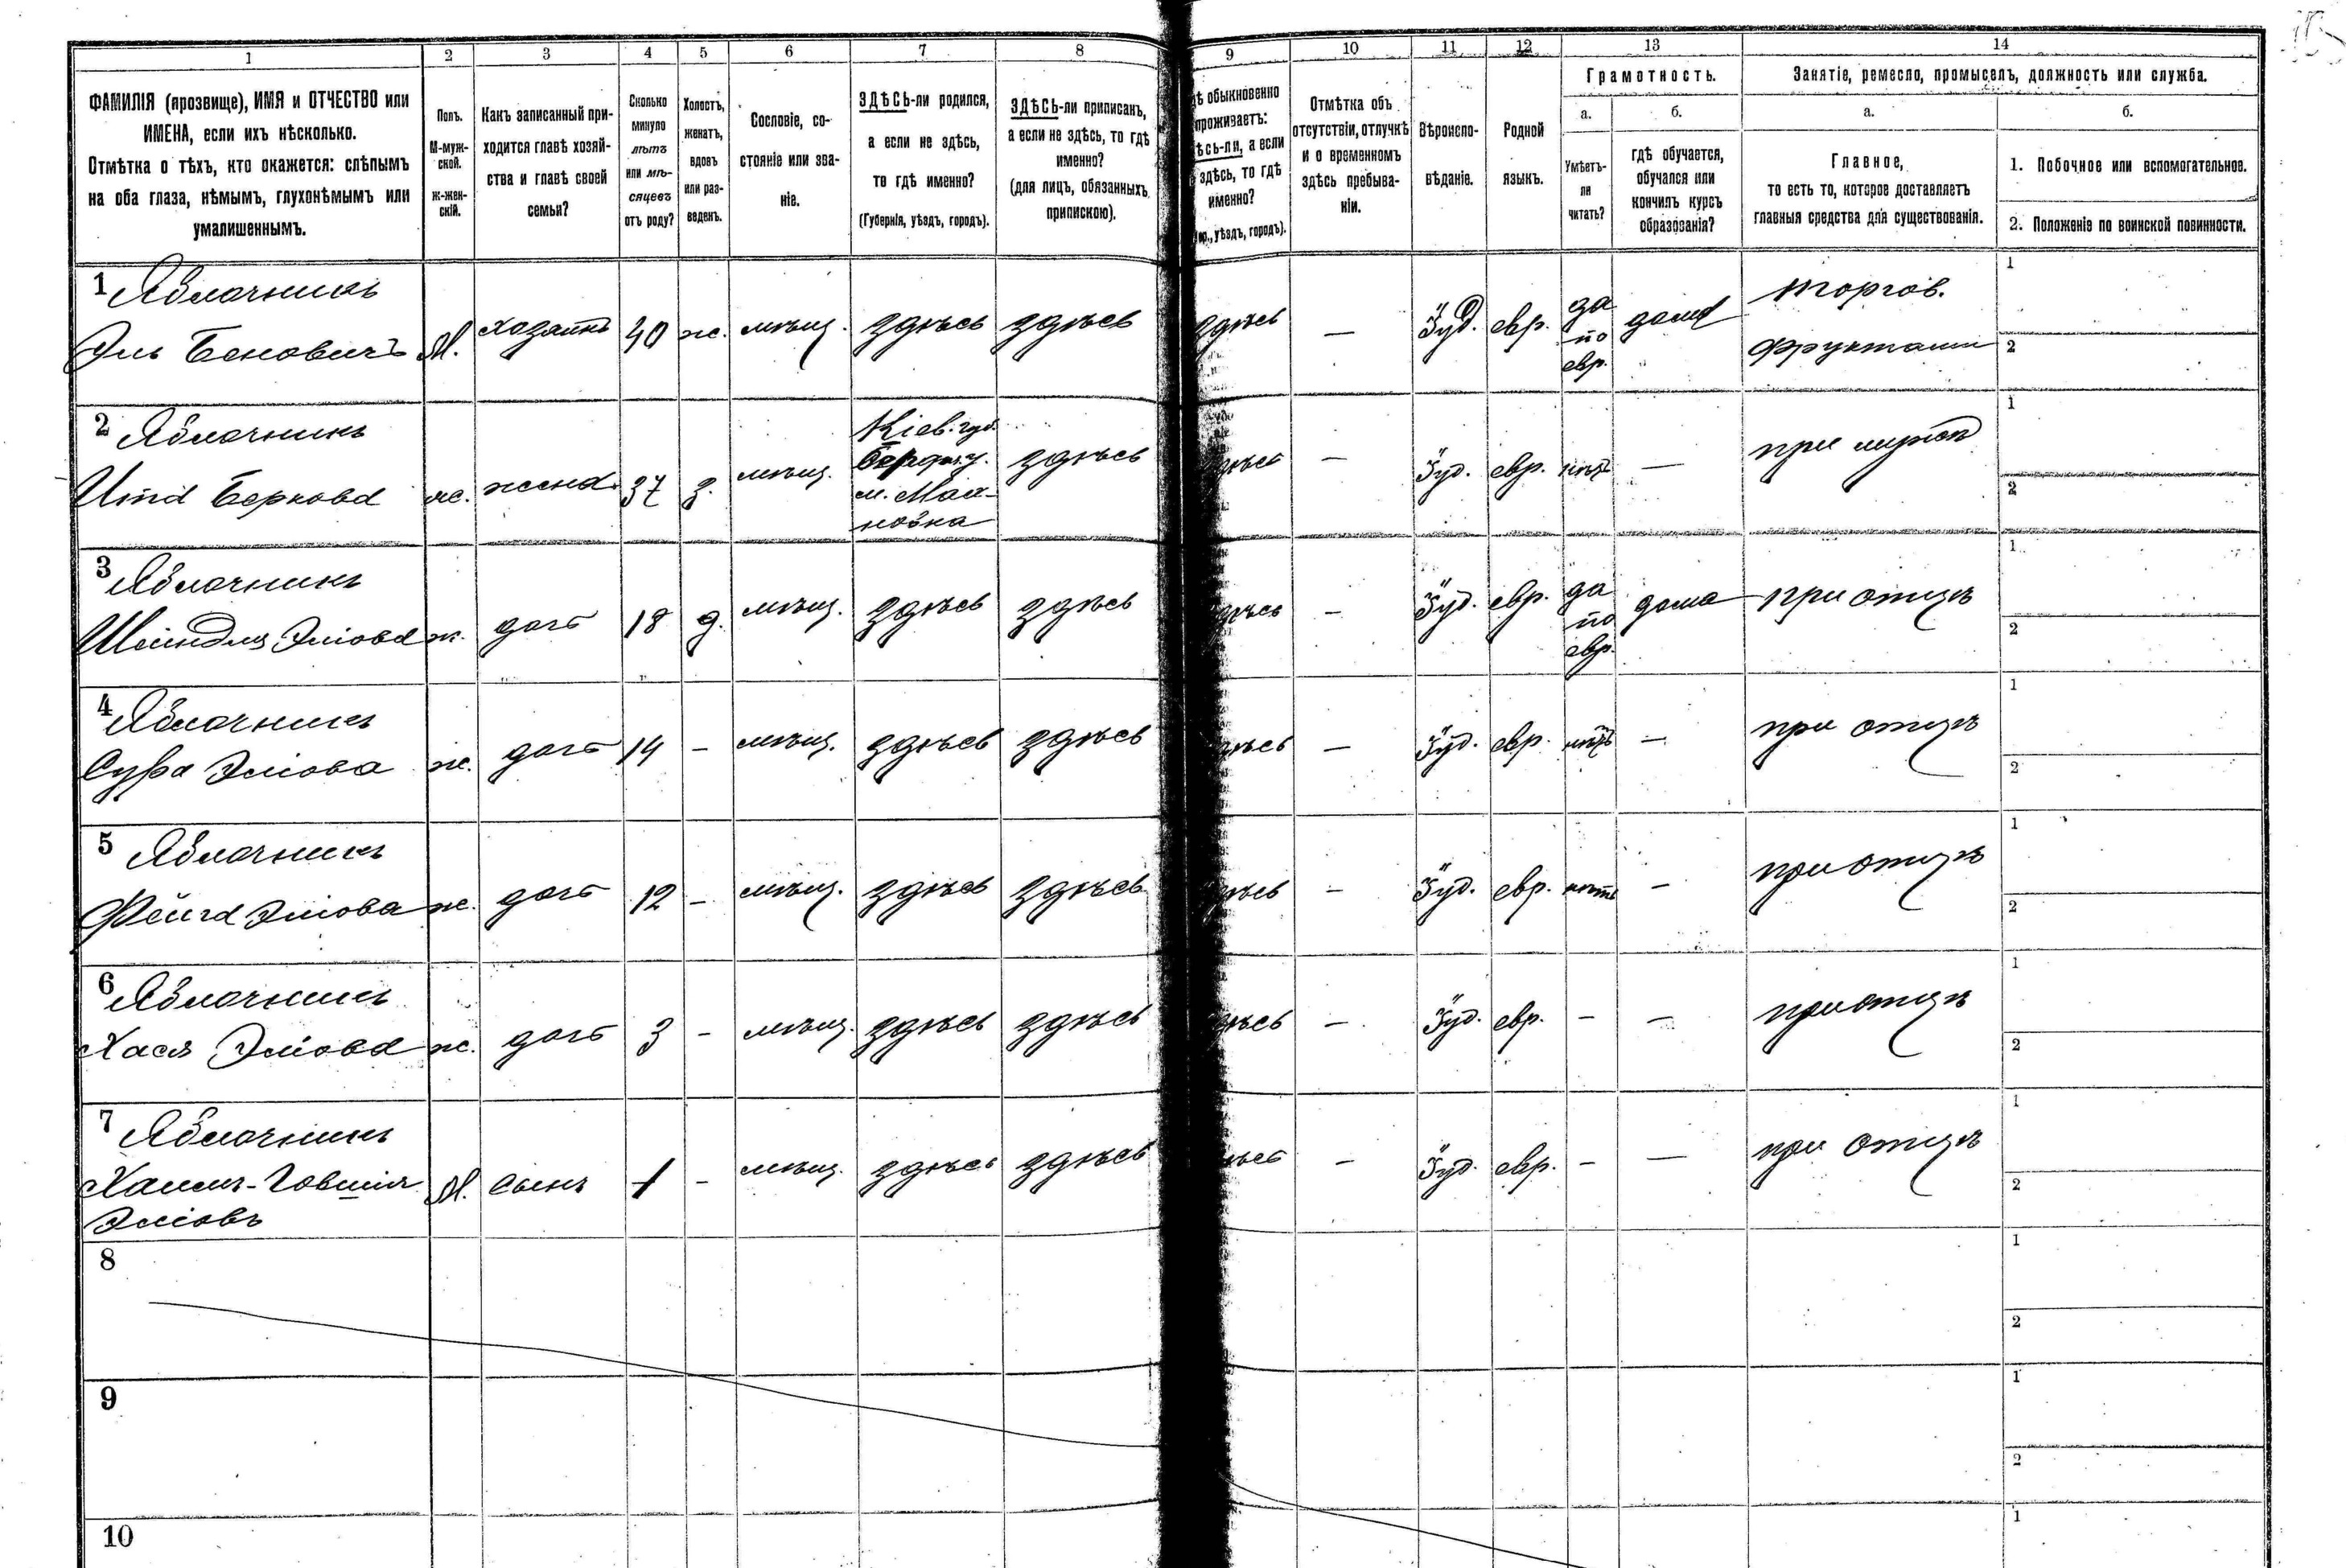 1 2 3 4 5 6 7 8 9 10 11 12 13 14
ФАМИЛІЯ (прозвище), ИМЯ и ОТЧЕСТВО или
ИМЕНА, если ихъ нѣсколько.
Отмѣтка о тѣхъ, кто окажется: слѣпымъ
на оба глаза, нѣмымъ, глухонѣмымъ или
умалишеннымъ.
Полъ.
М-муж-
ской.
ж-жен-
скій.
Какъ записанный при-
ходится главѣ хозяй-
ства и главѣ своей
семьи?
Сколько
минуло
лѣтъ
или мѣ-
сяцевъ
отъ роду?
Холостъ,
женатъ,
вдовъ
или раз-
веденъ.
Сословіе, со-
стояніе или зва-
ніе.
ЗДѢСЬ-ли родился,
а если не здѣсь,
то гдѣ именно?
(Губернія, уѣздъ, городъ).
ЗДѢСЬ-ли приписанъ,
а если не здѣсь, то гдѣ
именно?
(для лицъ, обязанныхъ
припискою).
обыкновенно
проживаетъ:
а если
здѣсь, то гдѣ
именно?
уѣздъ, городъ).
Отмѣтка объ
отсутствіи, отлучкѣ
и о временномъ
здѣсь пребыва-
ніи.
Вѣроиспо-
вѣданіе.
Родной
языкъ.
Грамотность.
а.
Умѣетъ-
ли
читать?
б.
гдѣ обучается,
обучался или
кончилъ курсъ
образованія?
Занятіе, ремесло, промыселъ, должность или служба.
а.
Главное,
то есть то, которое доставляетъ
главныя средства для существованія.
б.
1. Побочное или вспомогательное.
2. Положеніе по воинской повинности.
1 Яблочникъ
Эль Беновичъ М. хозяинъ 40 ж. мѣщ. здѣсь здѣсь здѣсь — Іуд. евр. да по евр. дома торгов. фруктами 1 2
2 Яблочникъ
Ита Беркова ж. жена 37 з. мѣщ. Кіев. губ. Бердич. у. м. Мах- новка здѣсь здѣсь — Іуд. евр. нѣтъ — при мужѣ 1 2
3 Яблочникъ
Шейндля Эліова ж. дочь 18 д. мѣщ. здѣсь здѣсь здѣсь — Іуд. евр. да по евр. дома при отцѣ 1 2
4 Яблочникъ
Сура Эліова ж. дочь 14 — мѣщ. здѣсь здѣсь здѣсь — Іуд. евр. нѣтъ — при отцѣ 1 2
5 Яблочникъ
Фейга Эліова ж. дочь 12 — мѣщ. здѣсь здѣсь здѣсь — Іуд. евр. нѣтъ — при отцѣ 1 2
6 Яблочникъ
Хася Эліова ж. дочь 3 — мѣщ. здѣсь здѣсь здѣсь — Іуд. евр. — — при отцѣ 1 2
7 Яблочникъ
Хаимъ-Говшія М. сынъ 1 — мѣщ. здѣсь здѣсь здѣсь — Іуд. евр. — — при отцѣ 1 2
Эліовъ
8 1 2
9 1 2
10 1